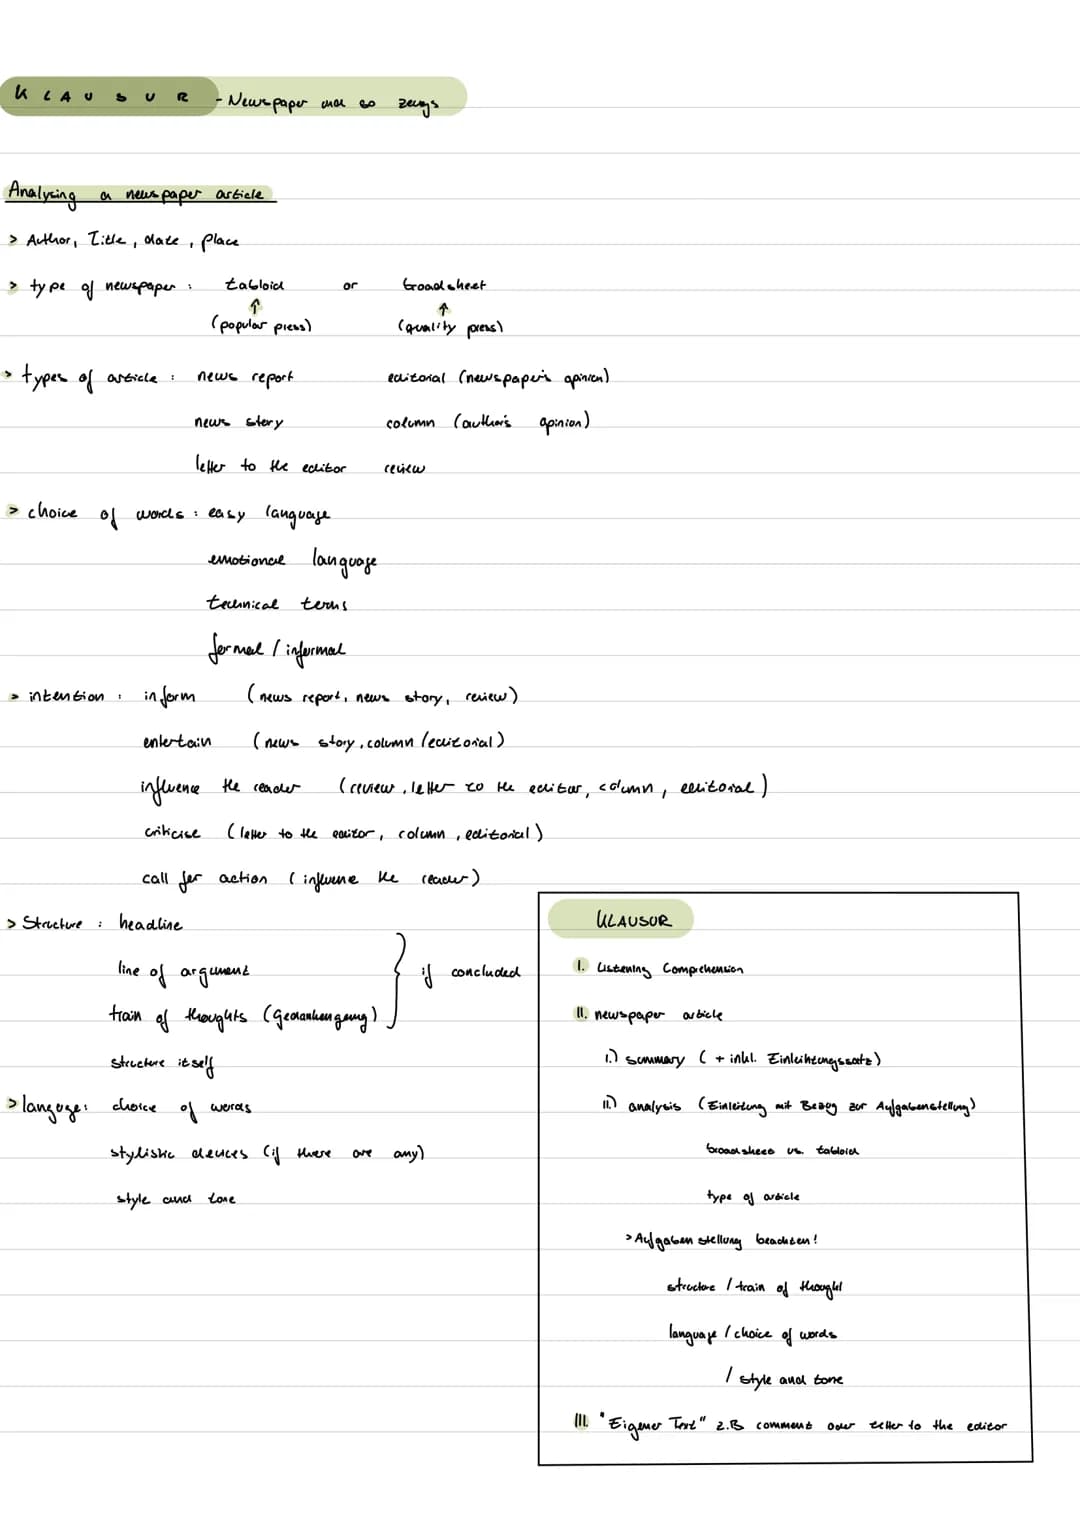 KLAUSUR - Newspaper und so zeugs
Analysing a newspaper article
> Author, Title, date, place
> type of newspaper : tabloid or broadsheet
↑ ↑
(popular press) (quality press)
> types of article : news report editorial (newspaper's opinion)
news story column (author's opinion)
letter to the editor review
> choice of words : easy language
emotional language
technical terms
formal / informal
> intention : inform (news report, news story, review)
entertain (news story, column / editorial)
influence the reader (review, letter to the editor, column, editorial)
criticise (letter to the editor, column, editorial)
call for action (influene the reader)
> Structure : headline
line of argument
train of thoughts (Gedankengang) } if concluded
structure itself
> languge: choice of words
stylistic devices (if there are any)
style and tone
KLAUSUR
I. Listening Comprehension
II. newspaper article
I.) summary ( + inkl. Einleihtungssatz)
II.) analysis (Einleitung mit Bezug zur Aufgabenstellung)
broadsheet vs. tabloid
type of article
> Aufgabenstellung beachten!
structure / train of thought
language / choice of words
/ style and tone
III. "Eigener Text" z.B comment oder letter to the editor